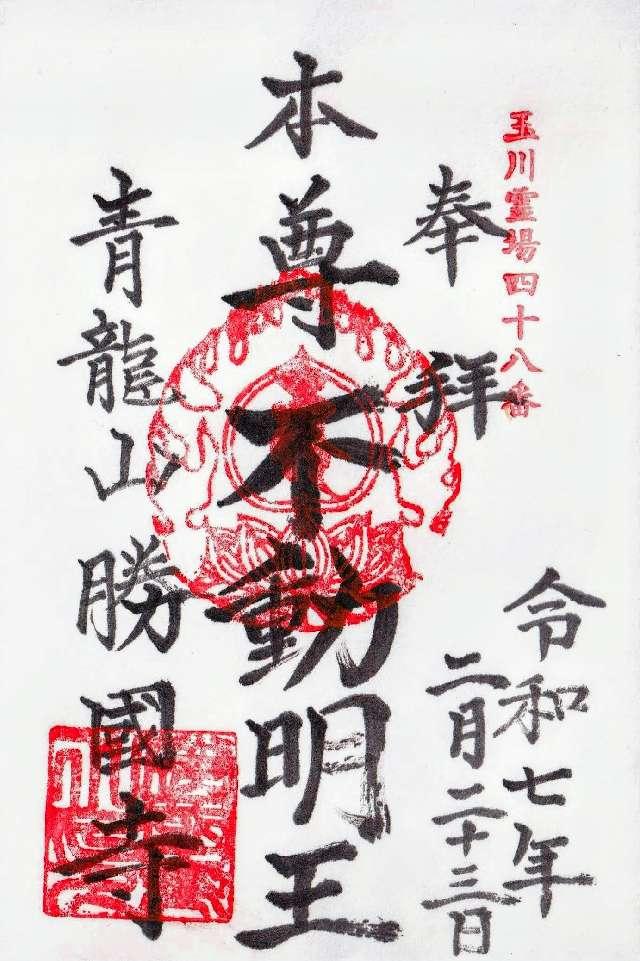 玉川霊場四十八番
奉拝
令和七年
二月二十三日
本尊不動明王
青龍山勝國寺